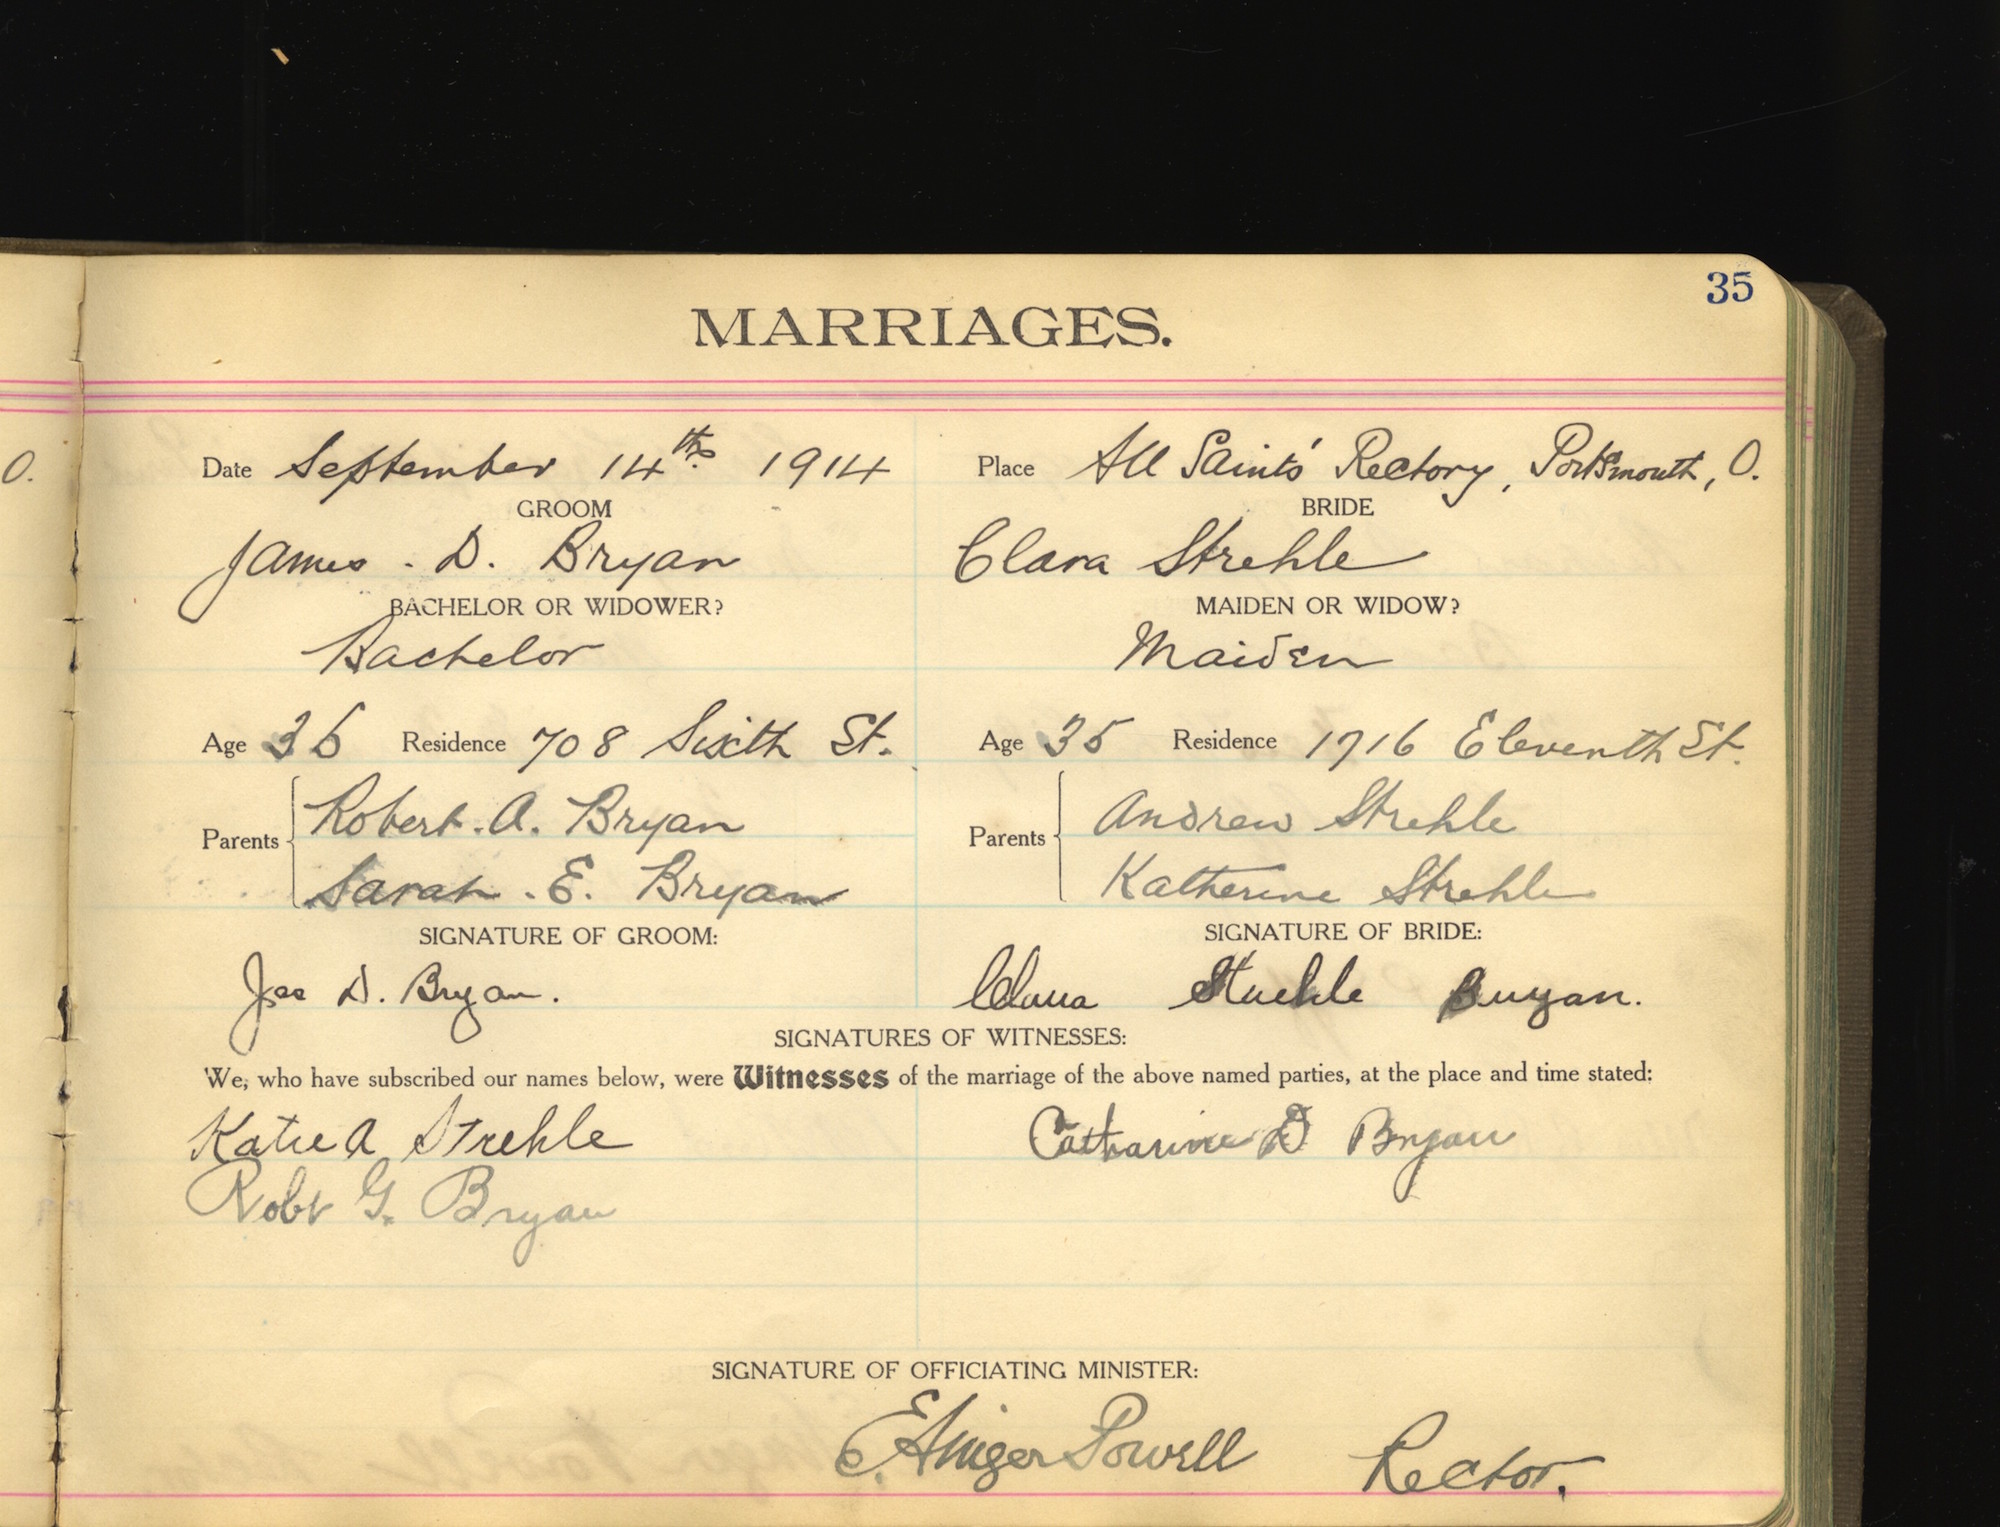 35
MARRIAGES.
O.
Date September 14th. 1914 Place All Saints' Rectory, Portsmouth, O.
GROOM BRIDE
James . D. Bryan Clara Strehle
BACHELOR OR WIDOWER? MAIDEN OR WIDOW?
Bachelor Maiden
Age 36 Residence 708 Sixth St. Age 35 Residence 1716 Eleventh St.
Robert . A. Bryan Andrew Strehle
Parents Parents
Sarah . E. Bryan Katherine Strehle
SIGNATURE OF GROOM: SIGNATURE OF BRIDE:
Jas D. Bryan. Clara Strehle Bryan.
SIGNATURES OF WITNESSES:
We, who have subscribed our names below, were Witnesses of the marriage of the above named parties, at the place and time stated:
Katie A Strehle Catharine D Bryan
Robt G. Bryan
SIGNATURE OF OFFICIATING MINISTER:
E. Ainger Powell Rector.